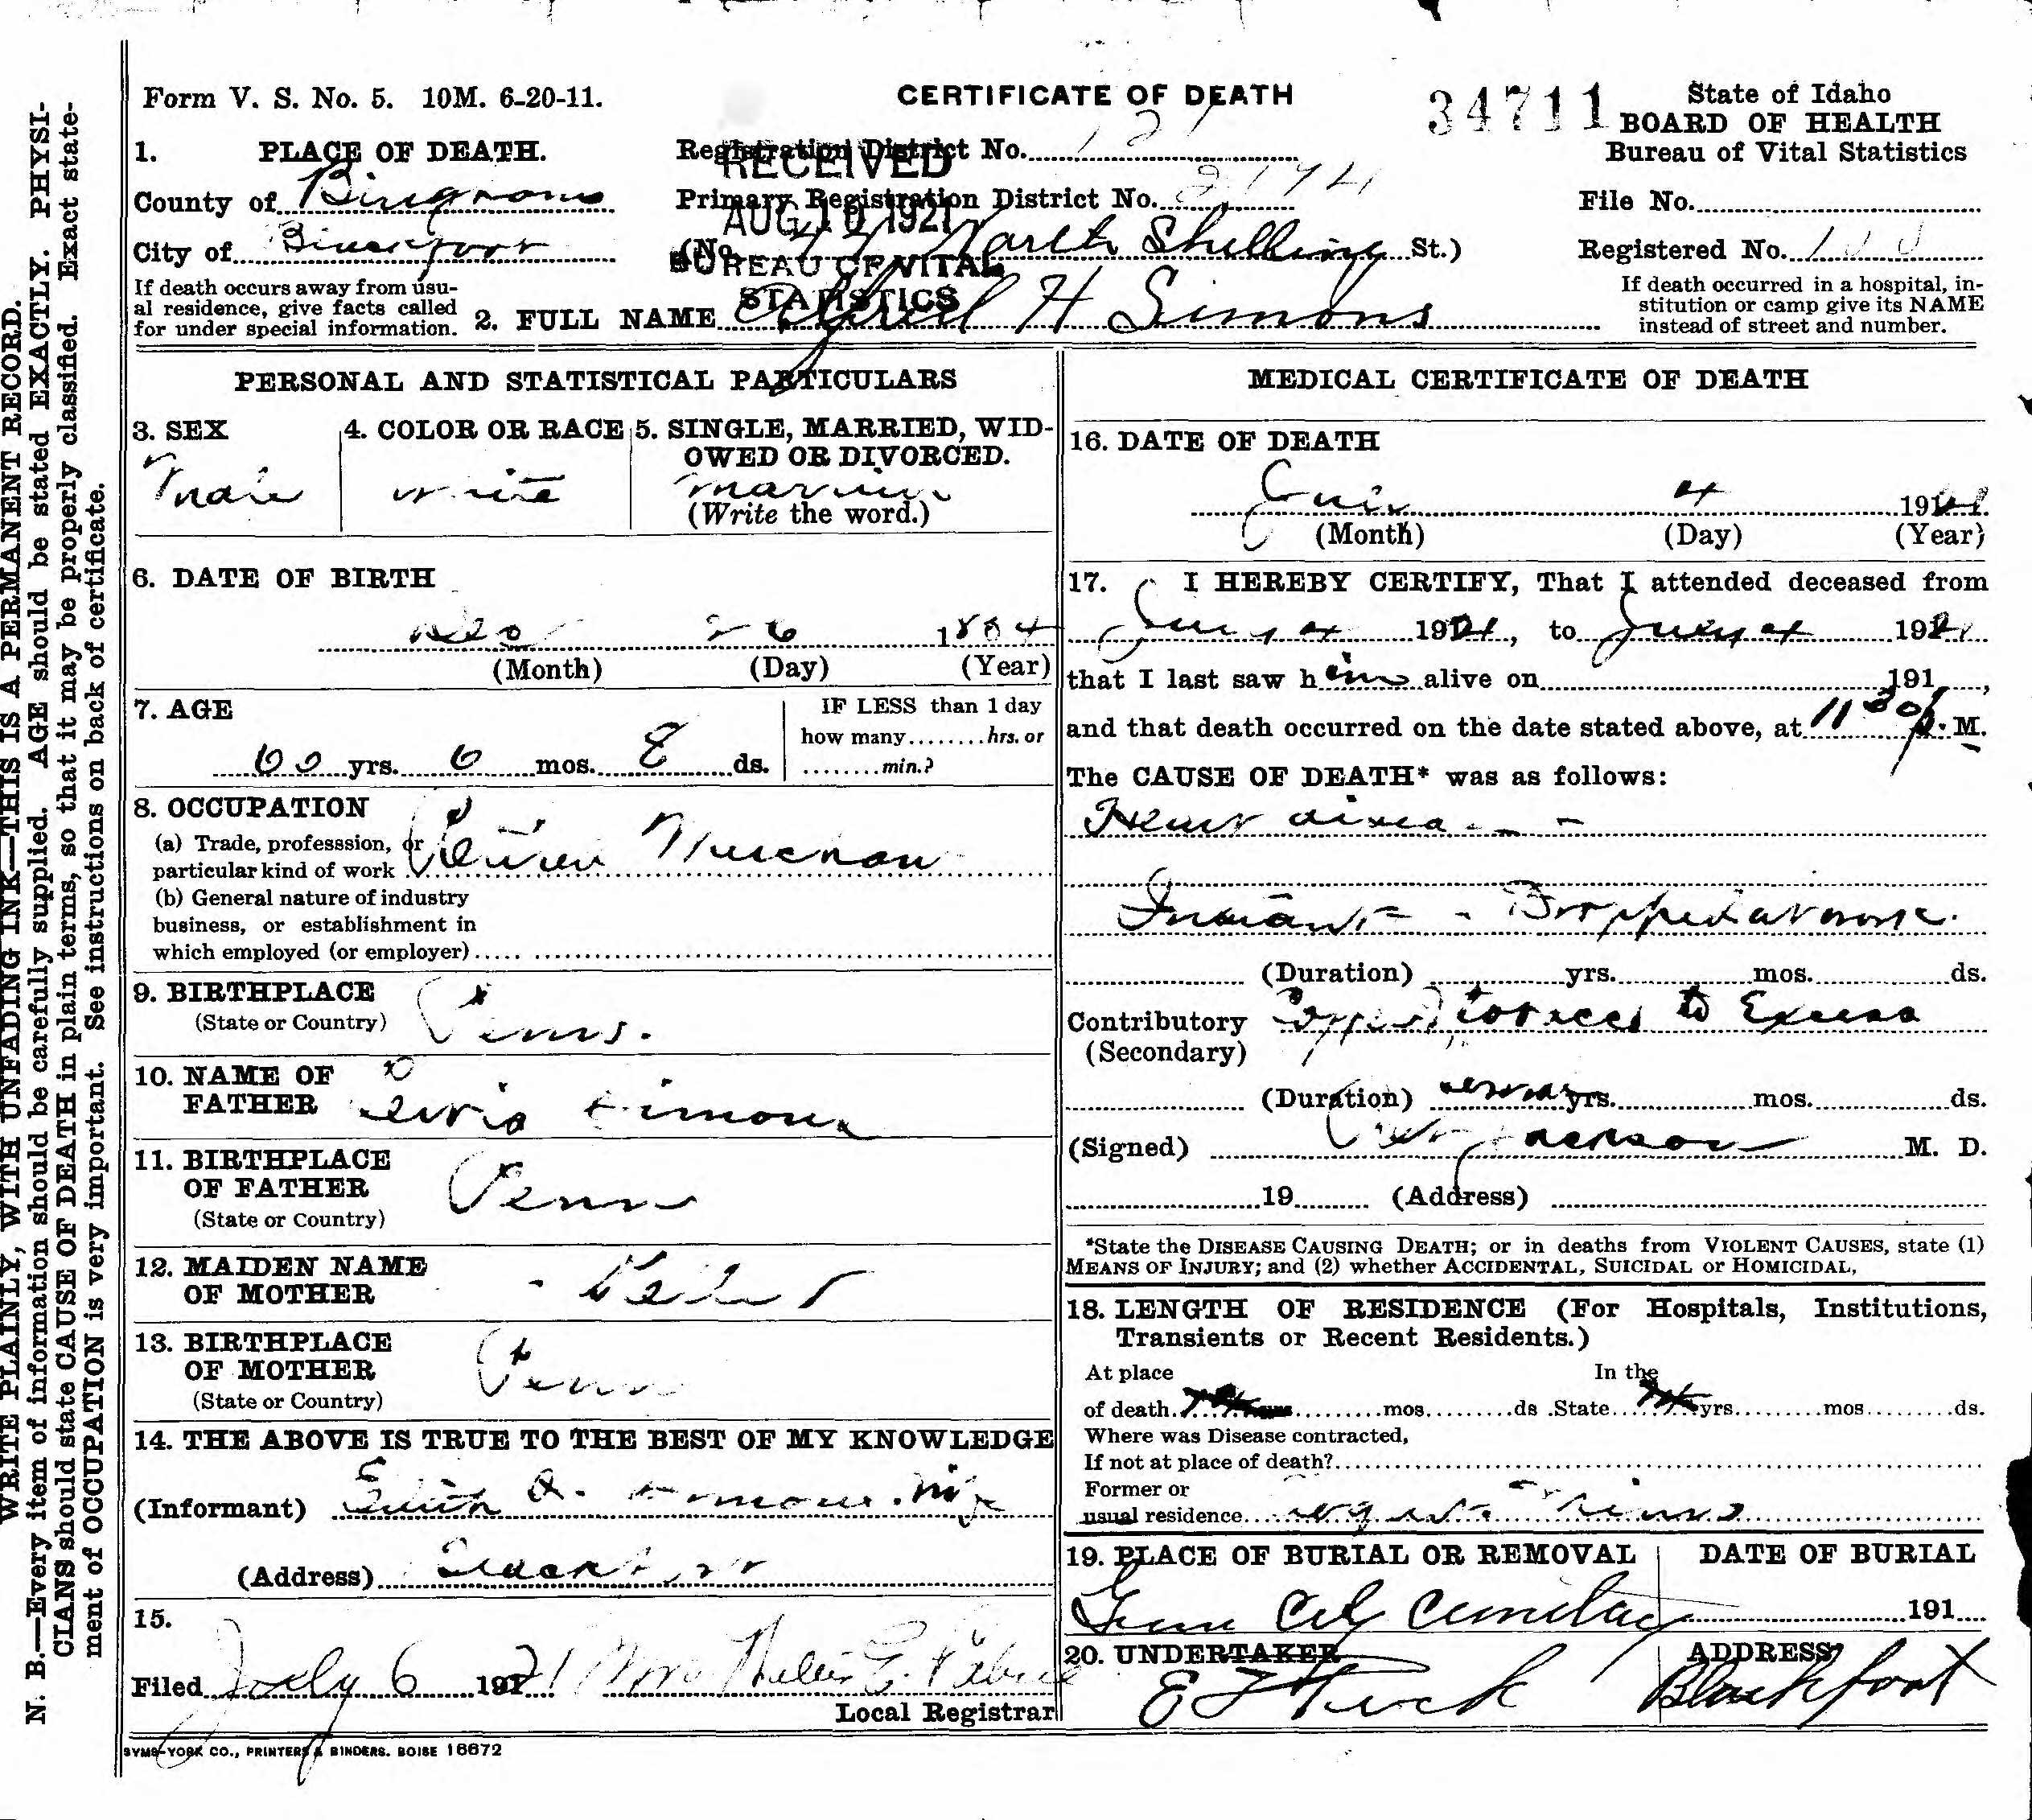 Form V. S. No. 5. 10M. 6-20-11.
CERTIFICATE OF DEATH
34711
State of Idaho
BOARD OF HEALTH
Bureau of Vital Statistics
1. PLACE OF DEATH.
Registration District No. 121
RECEIVED
County of
Primary Registration District No.
File No.
AUG 10 1921
City of
(No. North Shilling St.)
Registered No.
BUREAU OF VITAL
STATISTICS
If death occurs away from usu-
al residence, give facts called
for under special information.
2. FULL NAME H Simons
If death occurred in a hospital, in-
stitution or camp give its NAME
instead of street and number.
PERSONAL AND STATISTICAL PARTICULARS
3. SEX
Male
4. COLOR OR RACE
White
5. SINGLE, MARRIED, WID-
OWED OR DIVORCED.
Married
(Write the word.)
6. DATE OF BIRTH
Dec 26
(Month) (Day) (Year)
7. AGE
yrs. 6 mos. 8 ds.
IF LESS than 1 day
how many hrs. or
min.?
8. OCCUPATION
(a) Trade, professsion, or
particular kind of work
(b) General nature of industry
business, or establishment in
which employed (or employer)
9. BIRTHPLACE
(State or Country)
Penns.
10. NAME OF
FATHER
11. BIRTHPLACE
OF FATHER
(State or Country)
Penn
12. MAIDEN NAME
OF MOTHER
13. BIRTHPLACE
OF MOTHER
(State or Country)
Penn
14. THE ABOVE IS TRUE TO THE BEST OF MY KNOWLEDGE
(Informant)
(Address)
15.
Filed July 6 1921 Mrs
Local Registrar
MEDICAL CERTIFICATE OF DEATH
16. DATE OF DEATH
July 4 1921
(Month) (Day) (Year)
17. I HEREBY CERTIFY, That I attended deceased from
July 4 1921, to July 4 1921
that I last saw him alive on 191 ,
and that death occurred on the date stated above, at 11 30 P. M.
The CAUSE OF DEATH* was as follows:
Heart disea
(Duration) yrs. mos. ds.
Contributory to Excess
(Secondary)
(Duration) yrs. mos. ds.
(Signed) Jackson M. D.
19 (Address)
*State the DISEASE CAUSING DEATH; or in deaths from VIOLENT CAUSES, state (1)
MEANS OF INJURY; and (2) whether ACCIDENTAL, SUICIDAL or HOMICIDAL,
18. LENGTH OF RESIDENCE (For Hospitals, Institutions,
Transients or Recent Residents.)
At place In the
of death mos ds .State yrs mos ds.
Where was Disease contracted,
If not at place of death?
Former or
usual residence
19. PLACE OF BURIAL OR REMOVAL
DATE OF BURIAL
191
20. UNDERTAKER
ADDRESS
Blackfoot
SYMS-YORK CO., PRINTERS & BINDERS. BOISE 16672
WRITE PLAINLY, WITH UNFADING INK—THIS IS A PERMANENT RECORD.
N. B.—Every item of information should be carefully supplied. AGE should be stated EXACTLY. PHYSI-
CIANS should state CAUSE OF DEATH in plain terms, so that it may be properly classified. Exact state-
ment of OCCUPATION is very important. See instructions on back of certificate.